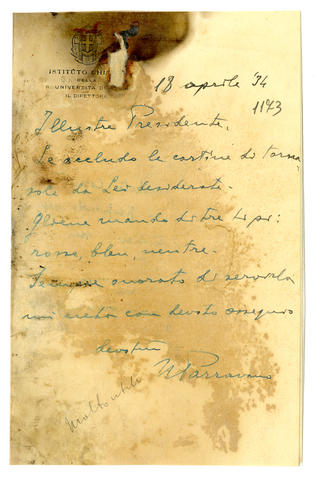 ISTITUTO CHI
DELLA
R. UNIVERSITÀ DI
IL DIRETTORE
18 aprile 34
1143
Illustre Presidente,
Le accludo le cartine di torna
sole da Lei desiderate.
Gliene mando di tre tipi:
rosse, bleu, neutre.
Sempre onorato di servirla
mi creda con devoto ossequio
devotmo
N Parravano